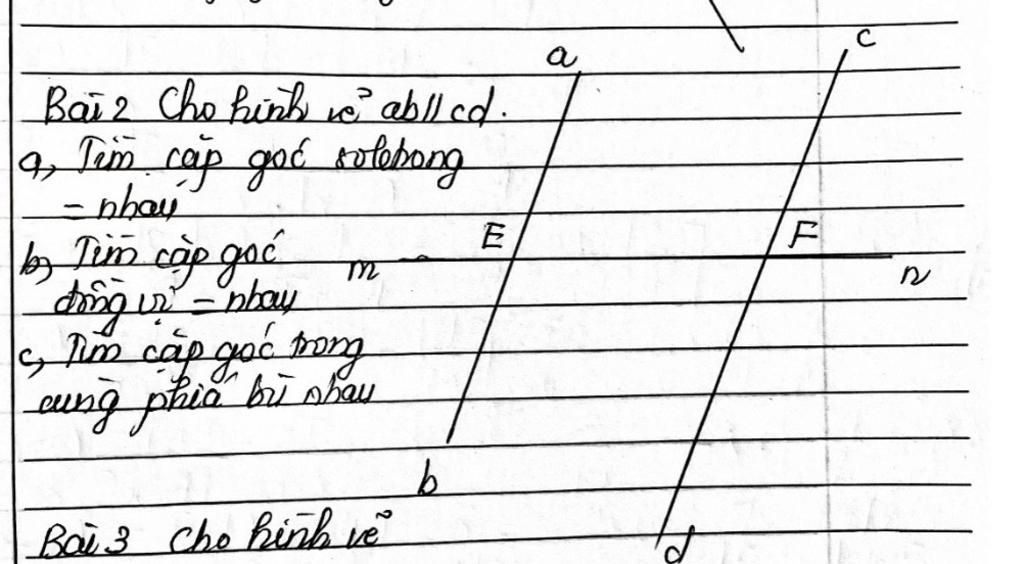 a
c
Bài 2 Cho hình vẽ ab // cd.
a, Tìm cặp góc soletrong
= nhau
E
F
b, Tìm cặp góc
m
n
đồng vị = nhau
c, Tìm cặp góc trong
cùng phía bù nhau
b
Bài 3 Cho hình vẽ
d